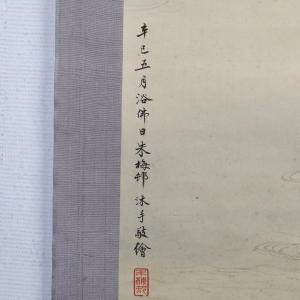 辛巳五月浴佛日朱梅邨沐手敬繪